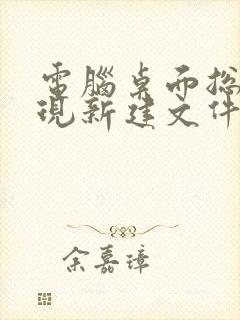 電腦桌面總
現新建文件
余嘉璋